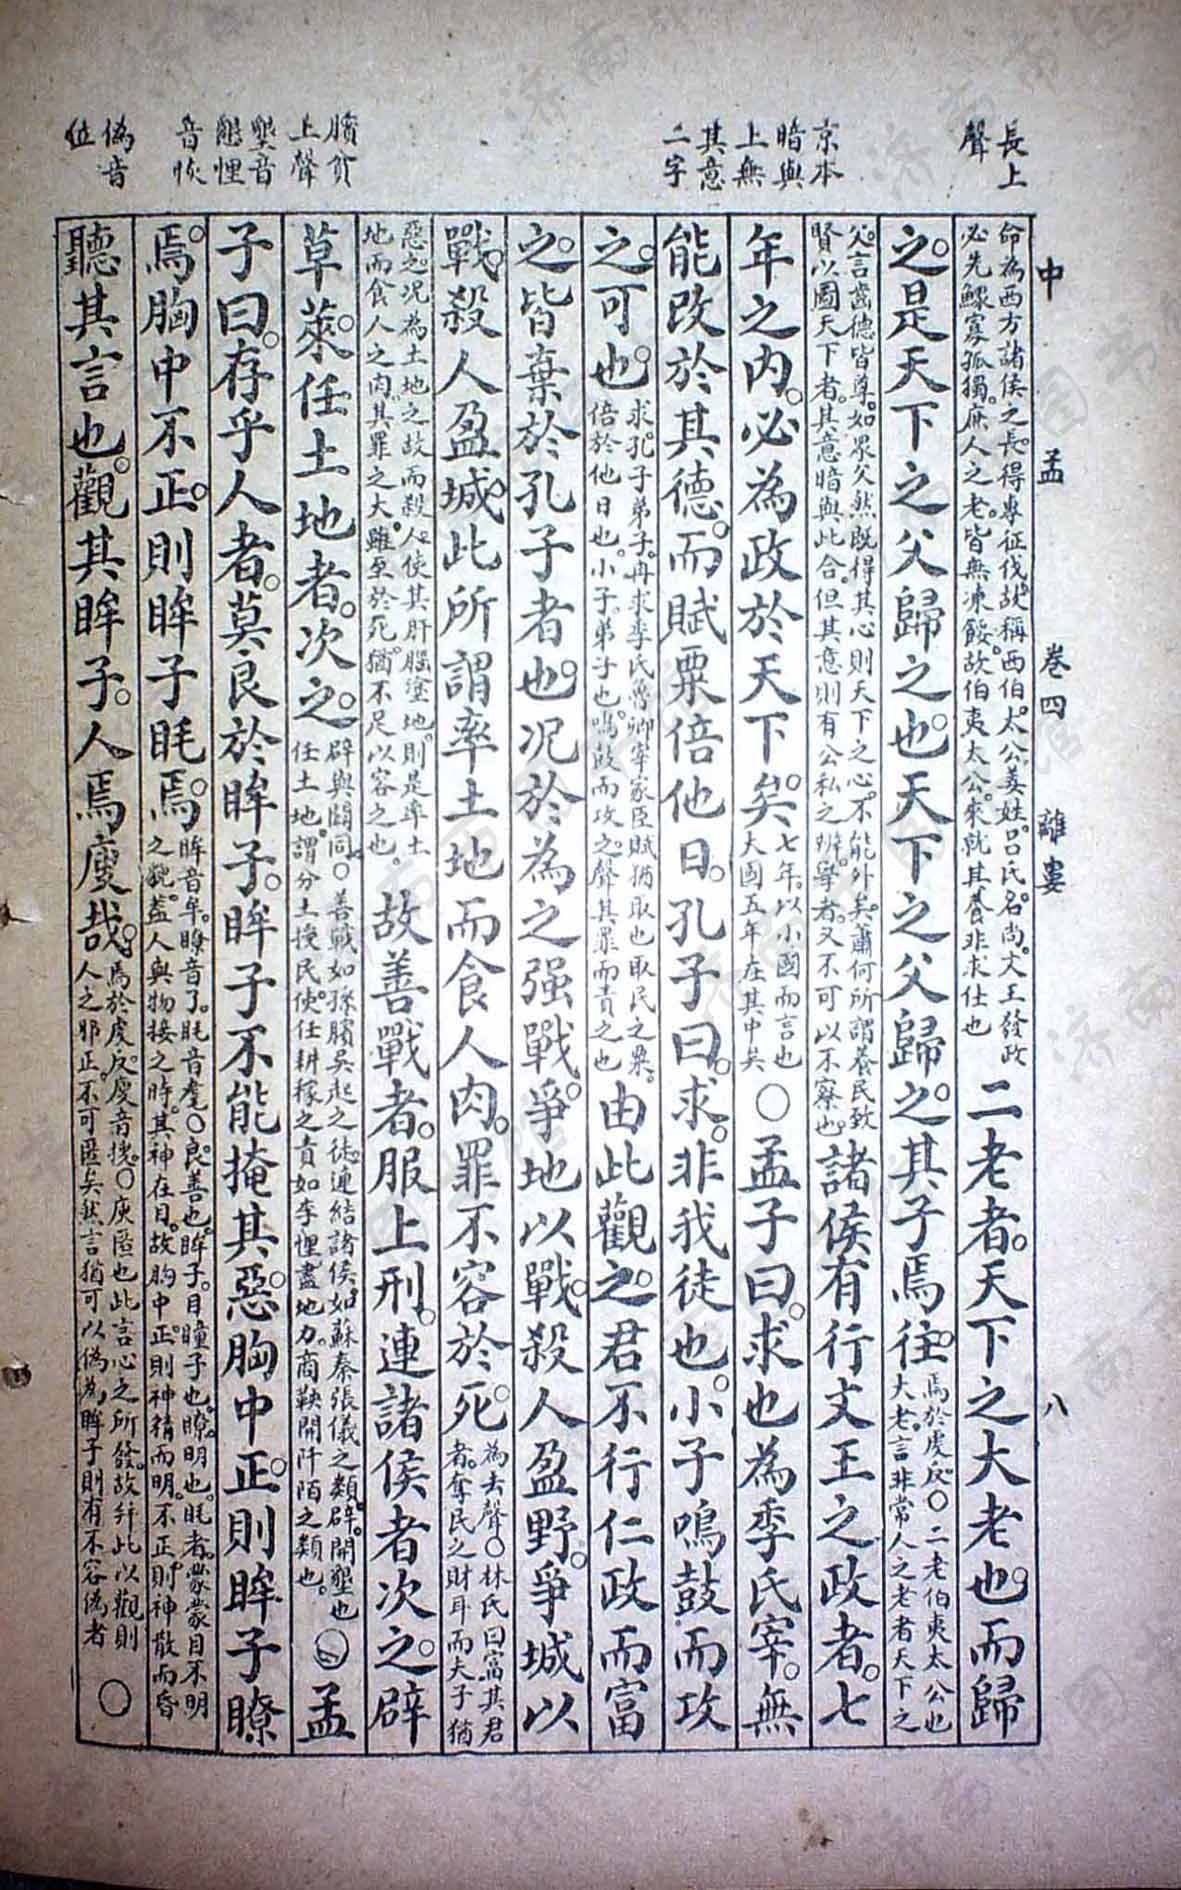 長上
聲
京本
暗與
上無
其意
二字
臏貧
上聲
墾音
懇悝
音恢
偽音
位
中孟 卷四 離婁 八
命為西方諸侯之長得專征伐故稱西伯太公姜姓呂氏名尚文王發政
必先鰥寡孤獨庶人之老皆無凍餒故伯夷太公來就其養非求仕也
二老者天下之大老也而歸
之是天下之父歸之也天下之父歸之其子焉往
焉於虔反○二老伯夷太公也
大老言非常人之老者天下之
父言齒德皆尊如眾父然既得其心則天下之心不能外矣蕭何所謂養民致
賢以圖天下者其意暗與此合但其意則有公私之辨學者又不可以不察也
諸侯有行文王之政者七
年之內必為政於天下矣
七年以小國而言也
大國五年在其中矣
○孟子曰求也為季氏宰無
能改於其德而賦粟倍他日孔子曰求非我徒也小子鳴鼓而攻
之可也
求孔子弟子冉求季氏魯卿宰家臣賦猶取也取民之粟
倍於他日也小子弟子也鳴鼓而攻之聲其罪而責之也
由此觀之君不行仁政而富
之皆棄於孔子者也況於為之强戰爭地以戰殺人盈野爭城以
戰殺人盈城此所謂率土地而食人肉罪不容於死
為去聲○林氏曰富其君
者奪民之財耳而夫子猶
惡之況為土地之故而殺人使其肝腦塗地則是率土
地而食人之肉其罪之大雖至於死猶不足以容之也
故善戰者服上刑連諸侯者次之辟
草萊任土地者次之
辟與闢同○善戰如孫臏吳起之徒連結諸侯如蘇秦張儀之類辟開墾也
任土地謂分土授民使任耕稼之責如李悝盡地力商鞅開阡陌之類也
○孟
子曰存乎人者莫良於眸子眸子不能掩其惡胸中正則眸子瞭
焉胸中不正則眸子眊焉
眸音牟瞭音了眊音耄○良善也眸子目瞳子也瞭明也眊者蒙蒙目不明
之貌蓋人與物接之時其神在目故胸中正則神精而明不正則神散而昏
聽其言也觀其眸子人焉廋哉
焉於虔反廋音搜○廋匿也此言心之所發故并此以觀則
人之邪正不可匿矣然言猶可以偽為眸子則有不容偽者
○